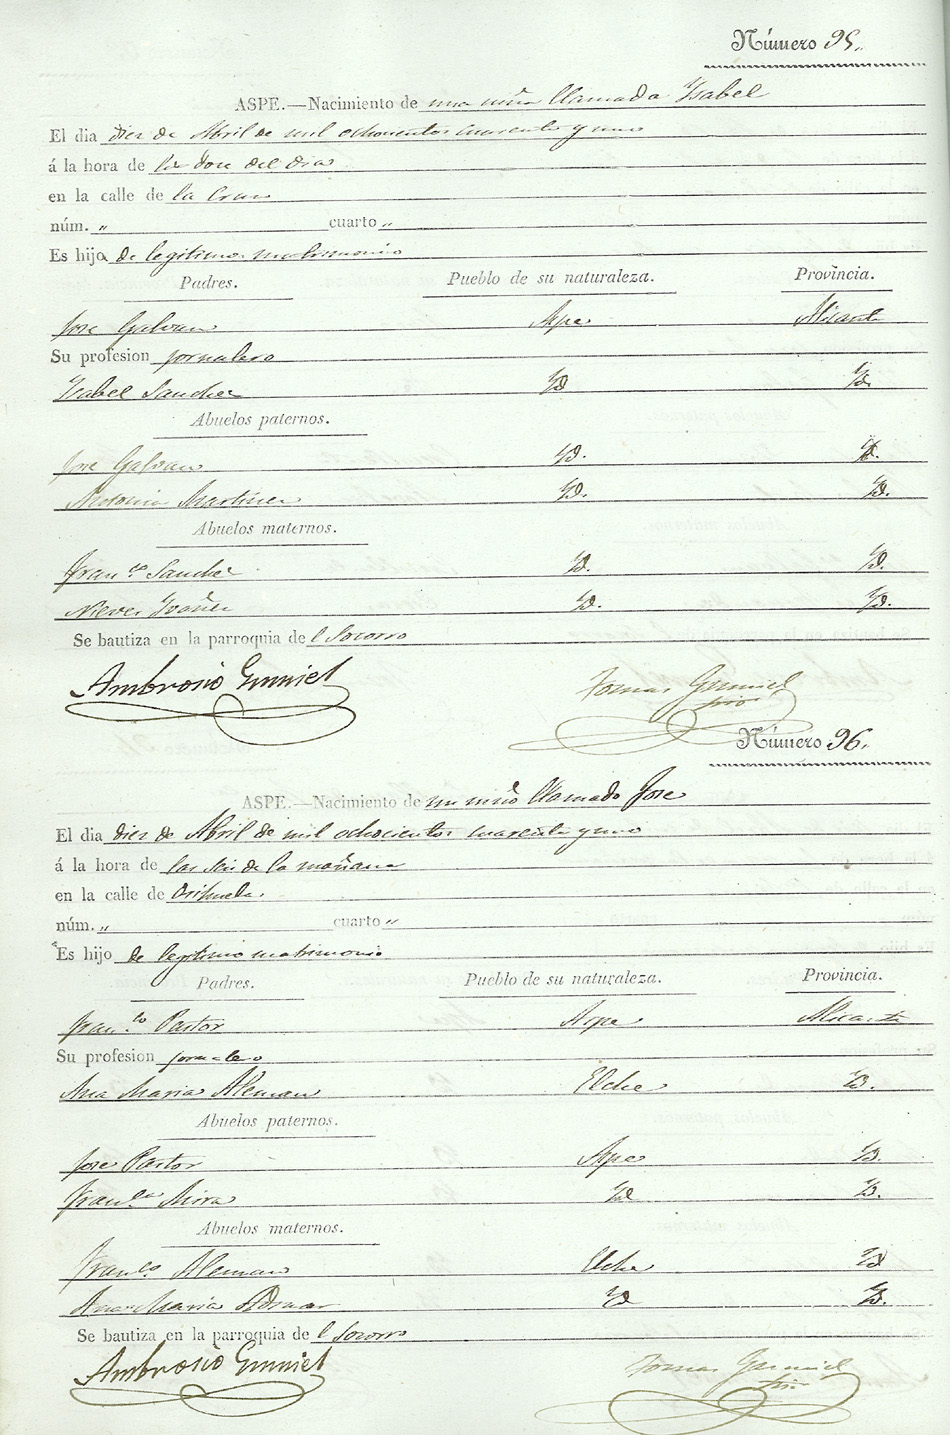 Número 95.
ASPE.—Nacimiento de una niña llamada Ysabel
El dia diez de Abril de mil ochocientos cuarenta y uno
á la hora de las doce del dia
en la calle de la Cruz
núm. „ cuarto „
Es hija de legitimo matrimonio
Padres. Pueblo de su naturaleza. Provincia.
Jose Galvan Aspe Alicante
Su profesion jornalero
Ysabel Sanchez Yd Yd.
Abuelos paternos.
Jose Galvan Yd. Yd.
Antonia Martinez Yd. Yd.
Abuelos maternos.
Fran.co Sanchez Yd. Yd.
Nieves Yvañez Yd. Yd.
Se bautiza en la parroquia del Socorro
Ambrosio Gumiel Tomas Gumiel
Número 96.
ASPE.—Nacimiento de un niño llamado Jose
El dia diez de Abril de mil ochocientos cuarenta y uno
á la hora de las seis de la mañana
en la calle de Orihuela.
núm. „ cuarto „
Es hijo de legitimo matrimonio
Padres. Pueblo de su naturaleza. Provincia.
Fran.co Pastor Aspe Alicante
Su profesion jornalero
Ana Maria Aleman Elche Yd.
Abuelos paternos.
Jose Pastor Aspe Yd.
Fran.ca Mira Yd Yd.
Abuelos maternos.
Fran.co Aleman Elche Yd
Ana Maria Yd Yd.
Se bautiza en la parroquia del Socorro
Ambrosio Gumiel Tomas Gumiel